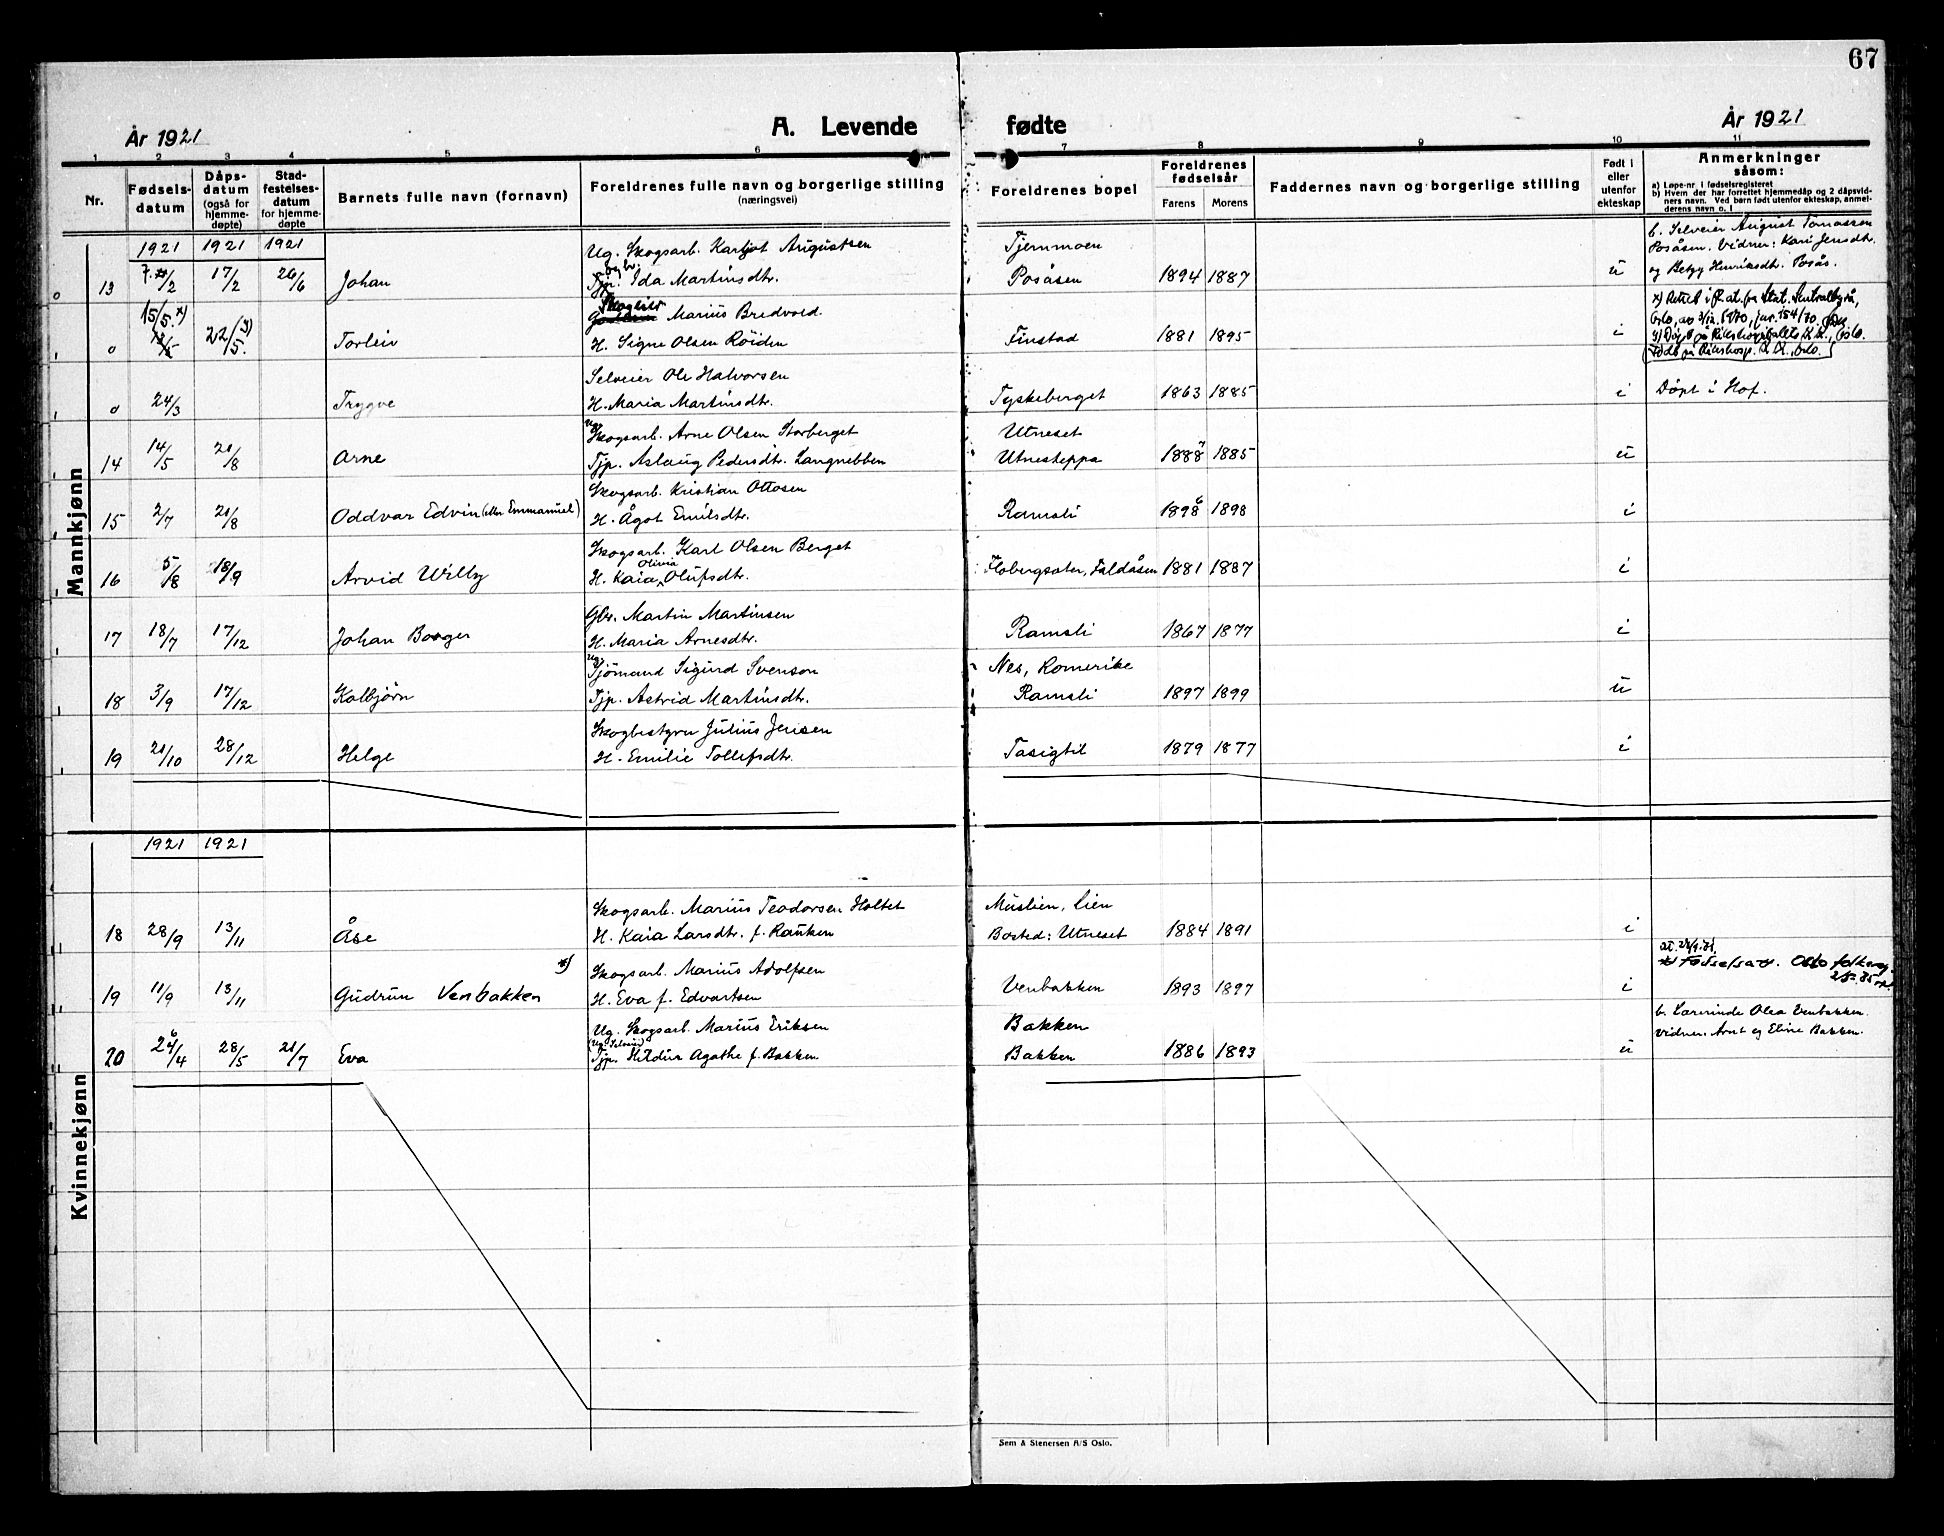 67
År 1921 A. Levende fødte År 1921
1 2 3 4 5 6 7 8 9 10 11
Nr. Fødselsdatum Dåpsdatum (også for hjemmedøpte) Stadfestelsesdatum for hjemmedøpte Barnets fulle navn (fornavn) Foreldrenes fulle navn og borgerlige stilling (næringsvei) Foreldrenes bopel Foreldrenes fødselsår Farens Morens Faddernes navn og borgerlige stilling Født i eller utenfor ekteskap Anmerkninger såsom:
a) Løpe-nr. i fødselsregisteret
b) Hvem der har forrettet hjemmedåp og 2 dåpsvidners navn. Ved barn født utenfor ekteskap, anmelderens navn o. l
Mannkjønn
1921 1921 1921
Ug. Skogsarb. Augustsen Tjernmoen b. Selveier August Tomassen
Posåsen. Vidner: Kari Jensdtr.
13 7/2 17/2 26/6 Johan Ida Martinsdtr. Posåsen 1894 1887 u og Betzy Henriksdtr. Posås.
15/5. x) Skogeier Marius Bredvold
o 22/5. y) Torleiv H. Signe Olsen Röiden Finstad 1881 1895 i
Oslo,
y) Døpt på Rikshospitalets K.K., Oslo.
Født på Rikshosp. K.K., Oslo.
Selveier Ole Halvorsen
o 24/3 Trygve H. Maria Martinsdtr. Tyskeberget 1863 1885 i Döpt i Hof.
ug. Skogsarb. Arne Olsen Storberget Utneset
14 14/5 21/8 Arne Tjp. Aslaug Pedersdtr. Langnebben Utnesteppa 1888 7 1885 u
Skogsarb. Kristian Ottosen
15 2/7 21/8 Oddvar Edvin (eller Emmanuel) H. Ågot Emilsdtr. Ramsli 1898 6 1898 i
Skogsarb. Karl Olsen Berget
16 5/8 18/9 Arvid Willy H. Kaia Olivia Olufsdtr. 1881 1887 i
Gbr. Martin Martinsen
17 18/7 17/12 Johan Borger H. Maria Arnesdtr. Ramsli 1867 1877 i
ug. Sjömand Sigurd Svenson Nes, Romerike
18 3/9 17/12 Kolbjörn Tjp. Astrid Martinsdtr. Ramsli 1897 1899 u
Skogbestyrer Julius Jensen
19 21/10 28/12 Helge H. Emilie Tollefsdtr. 1879 1877 i
Kvinnekjønn
1921 1921
Skogsarb. Marius Teodorsen Holtet Muslien, Lien
18 28/9 13/11 Åse H. Kaia Larsdtr. f. Rauken Bosted: Utneset 1884 1891 i
x) Skogsarb. Marius Adolfsen
19 11/9 13/11 Gudrun Venbakken H. Eva f. Edvartsen Venbakken 1893 1897 i
Ug. Skogsarb. Marius Eriksen Bakken b. Lærerinde Olea Venbakken.
vidner. Arnt og Eline Bakken.
20 26/4 28/5 21/7 Eva Tjp. Hildur Agathe f. Bakken Bakken 1886 1893 u
Sem & Stenersen A/S Oslo.